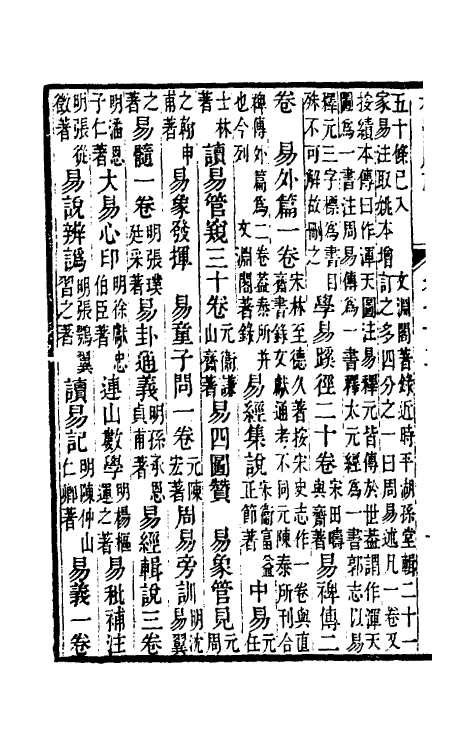 五十條已入　文淵閣著錄近時平湖孫堂輯二十一
家易注取姚本增訂之多四分之一曰周易述凡一卷又
按續本傳曰作渾天圖注易釋元皆傳於世蓋謂作渾天
圖為一書注周易傳為一書釋太元經為一書郭志以易
釋元三字標為書目殊不可解故刪之　學易蹊徑二十卷宋田疇與齋著易裨傳二
卷　易外篇一卷宋林至德久著按宋史志作一卷與直齋書錄文獻通考不同元陳泰所刊合
裨傳外篇為二卷蓋泰所并也今列　文淵閣著錄　易經集說宋衛富益正節著　中易元任
士林著　讀易管窺三十卷元衛謙山齋著易四圖贊　易象管見元周
之翰申甫著　易象發揮　易童子問一卷元陳宏著周易旁訓明沈易翼
之著　易髓一卷明張璞廷采著易卦通義明孫承恩貞甫著易經輯說三卷
明潘恩子仁著　大易心印明徐獻忠伯臣著　連山數學明楊樞運之著易秕補注
明張從徵著　易說辨譌明張鶚翼習之著　讀易記明陳仲山仁卿著　易義一卷